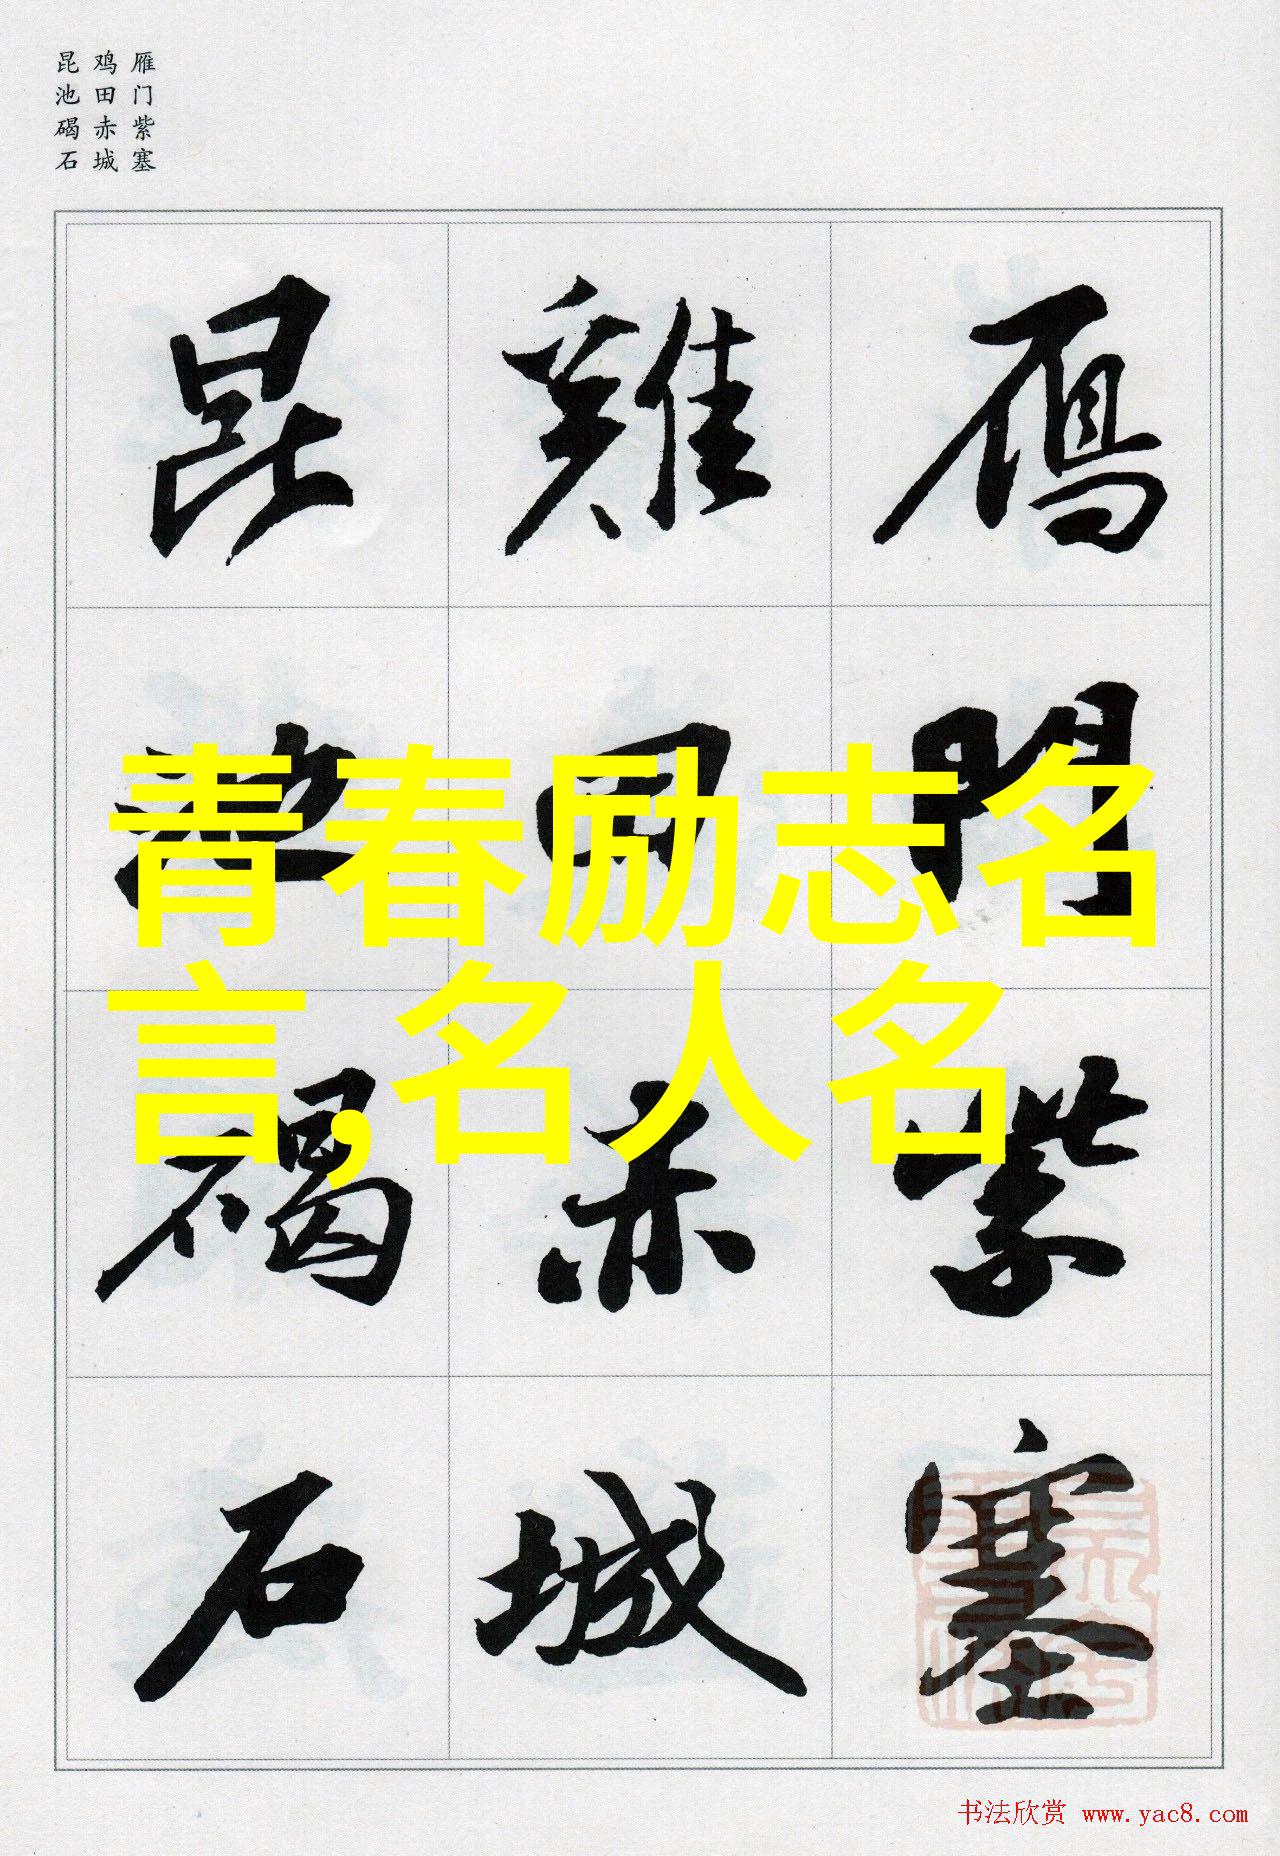 雁门紫塞
鸡田赤城
昆池碣石
雁門紫塞
雞田赤城
昆池碣石
青春励志名
言,名人名
书法欣赏 www.yac8.com